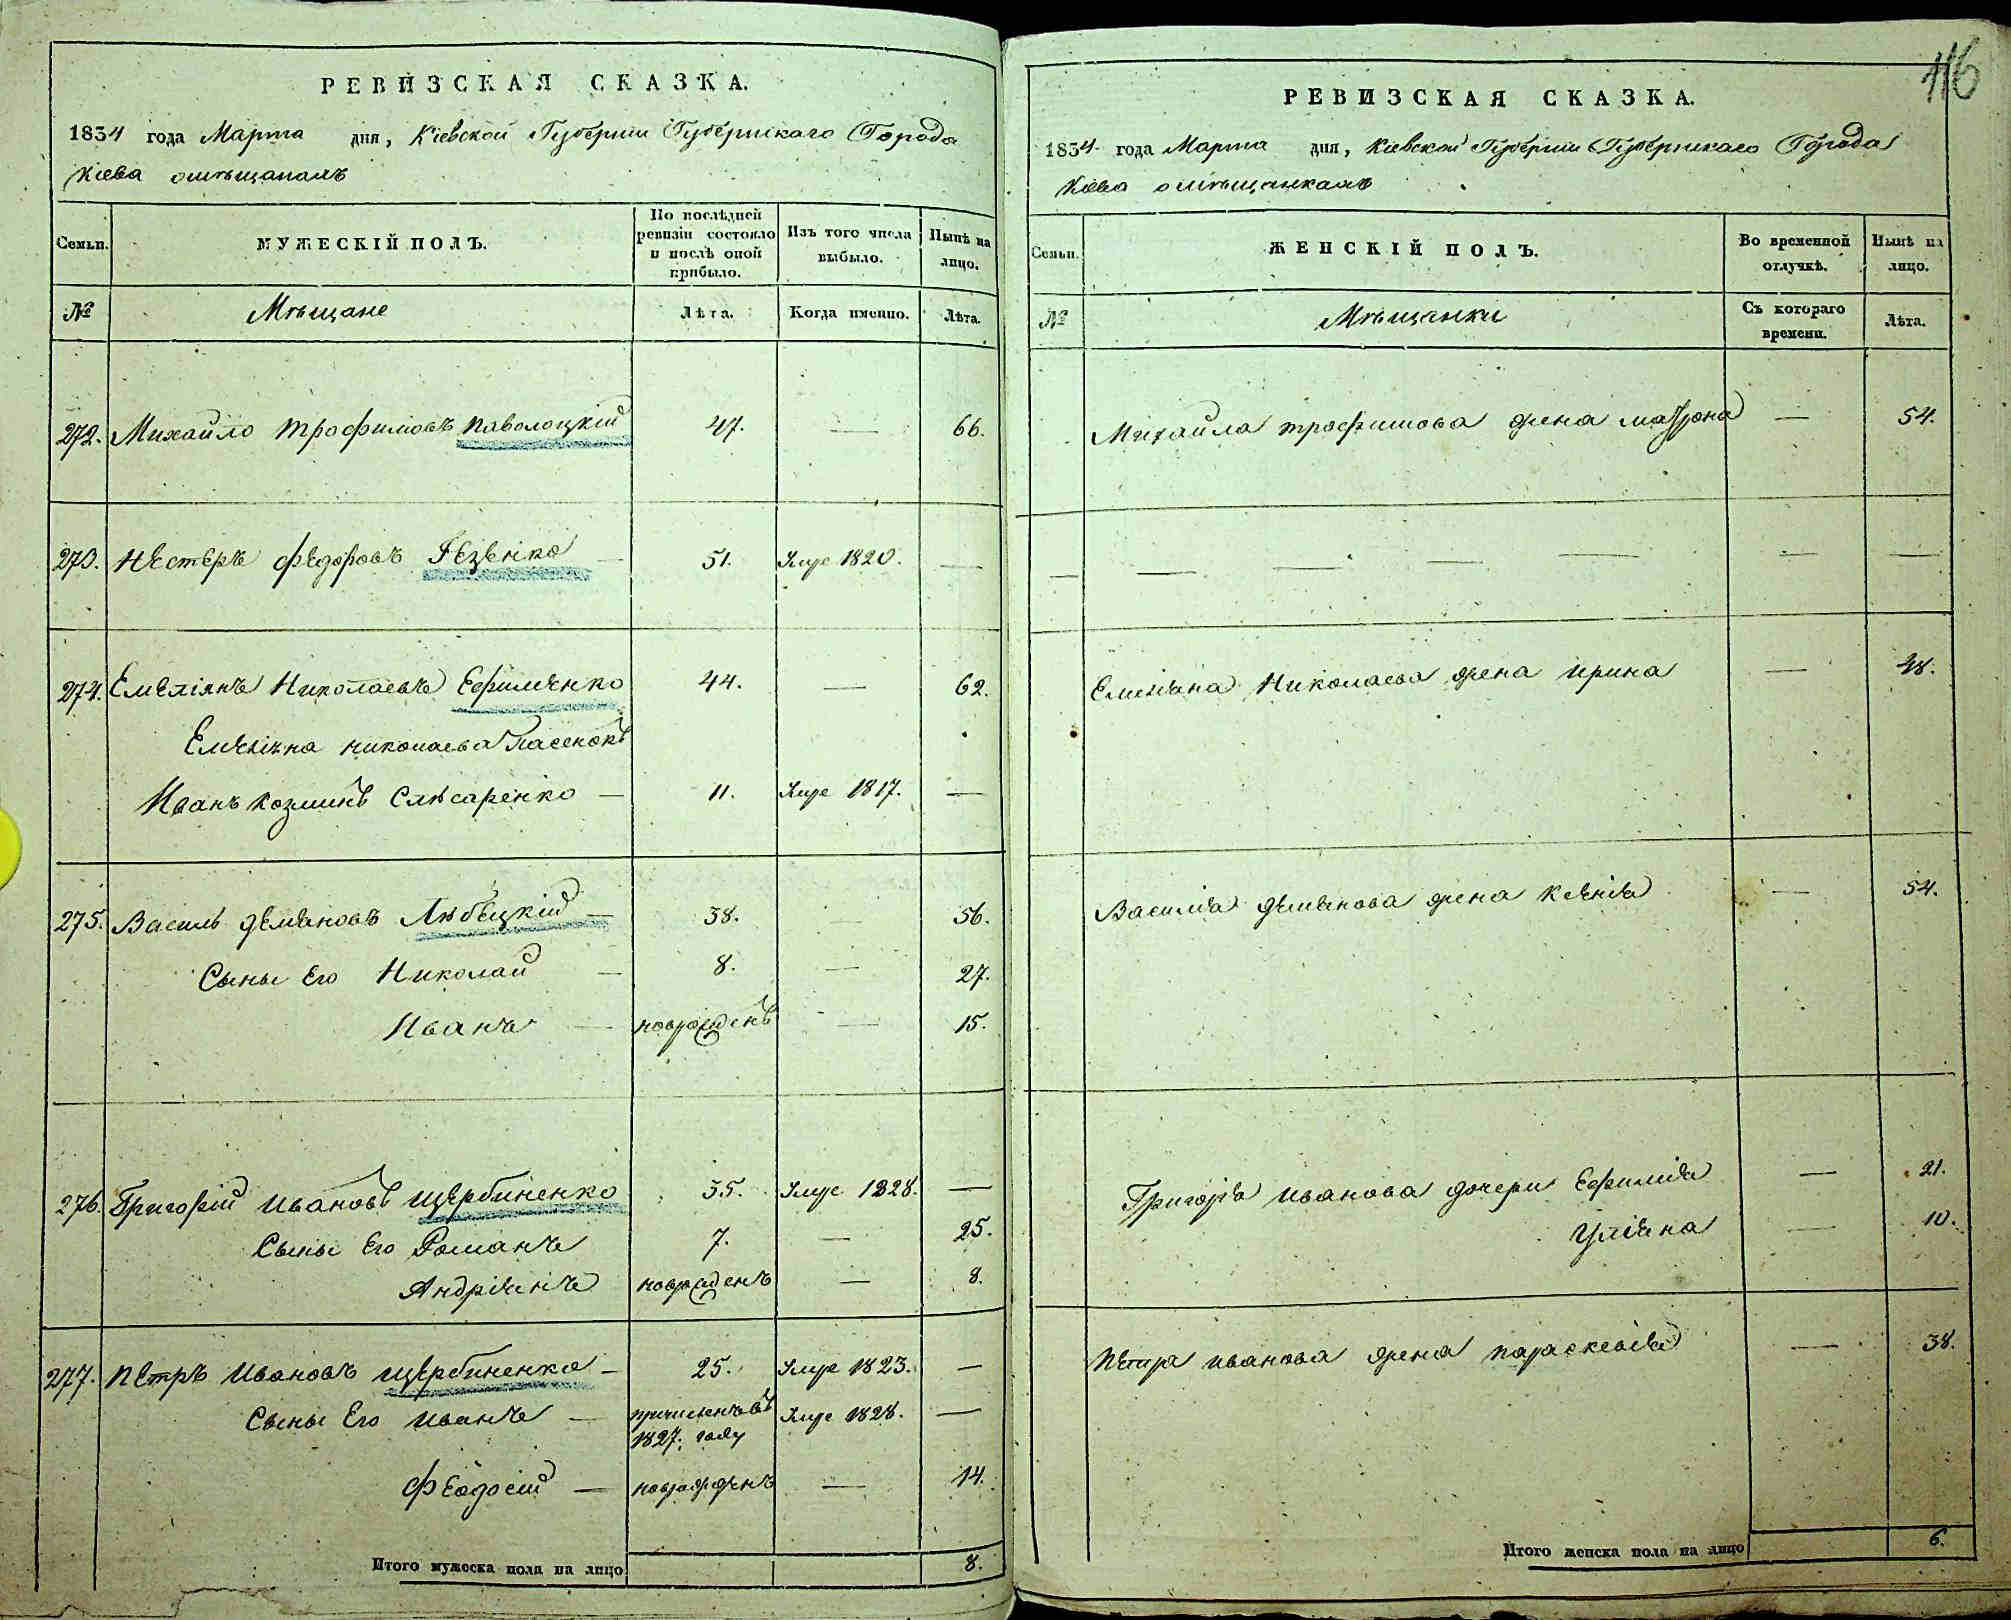 116
РЕВИЗСКАЯ СКАЗКА.
1834 года Марта дня, Кіевской Губерніи Губернскаго Города
Кіева омѣщанахъ
Семьи. МУЖЕСКІЙ ПОЛЪ. По послѣдней ревизіи состояло и послѣ оной прибыло. Изъ того числа выбыло. Нынѣ на лицо.
№ Мѣщане Лѣта. Когда именно. Лѣта.
272. Михайло Трофимовъ Паволоцкій 47. — 66.
273. Нестеръ Федоровъ 51. 1820. —
274. Емеліянъ Николаевъ Ефименко 44. — 62.
Емеліяна Николаева Пасенокъ
Иванъ Козминъ Слѣсаренко — 11. 1817. —
275. Василь Демяновъ Любецкій — 38. 56.
Сыны Его Николай — 8. — 27.
Иванъ — новрожденъ — 15.
276. Григорій Ивановъ Щербиненко 35. 1828. —
Сыны Его Романъ 7. — 25.
Андріянъ новрожденъ — 8.
277. Петръ Ивановъ Щербиненко — 25. 1823. —
Сыны Его Иванъ — причисленъ въ 1827. году 1828. —
Феодосій — новрожденъ — 14.
Итого мужеска пола на лицо 8.
РЕВИЗСКАЯ СКАЗКА.
1834 года Марта дня, Кіевской Губерніи Губернскаго Города
Кіева омѣщанкахъ
Семьи. ЖЕНСКІЙ ПОЛЪ. Во временной отлучкѣ. Нынѣ на лицо.
№ Мѣщанки Съ котораго времени. Лѣта.
Михайла Трофимова жена Матрона — 54.
— — — — — — —
Емеліяна Николаева жена Ирина — 48.
Василія Демянова жена Ксенія — 54.
Григорія Иванова дочери Ефимія — 21.
Уліяна — 10.
Петра Иванова жена Параскевія — 38.
Итого женска пола на лицо 6.